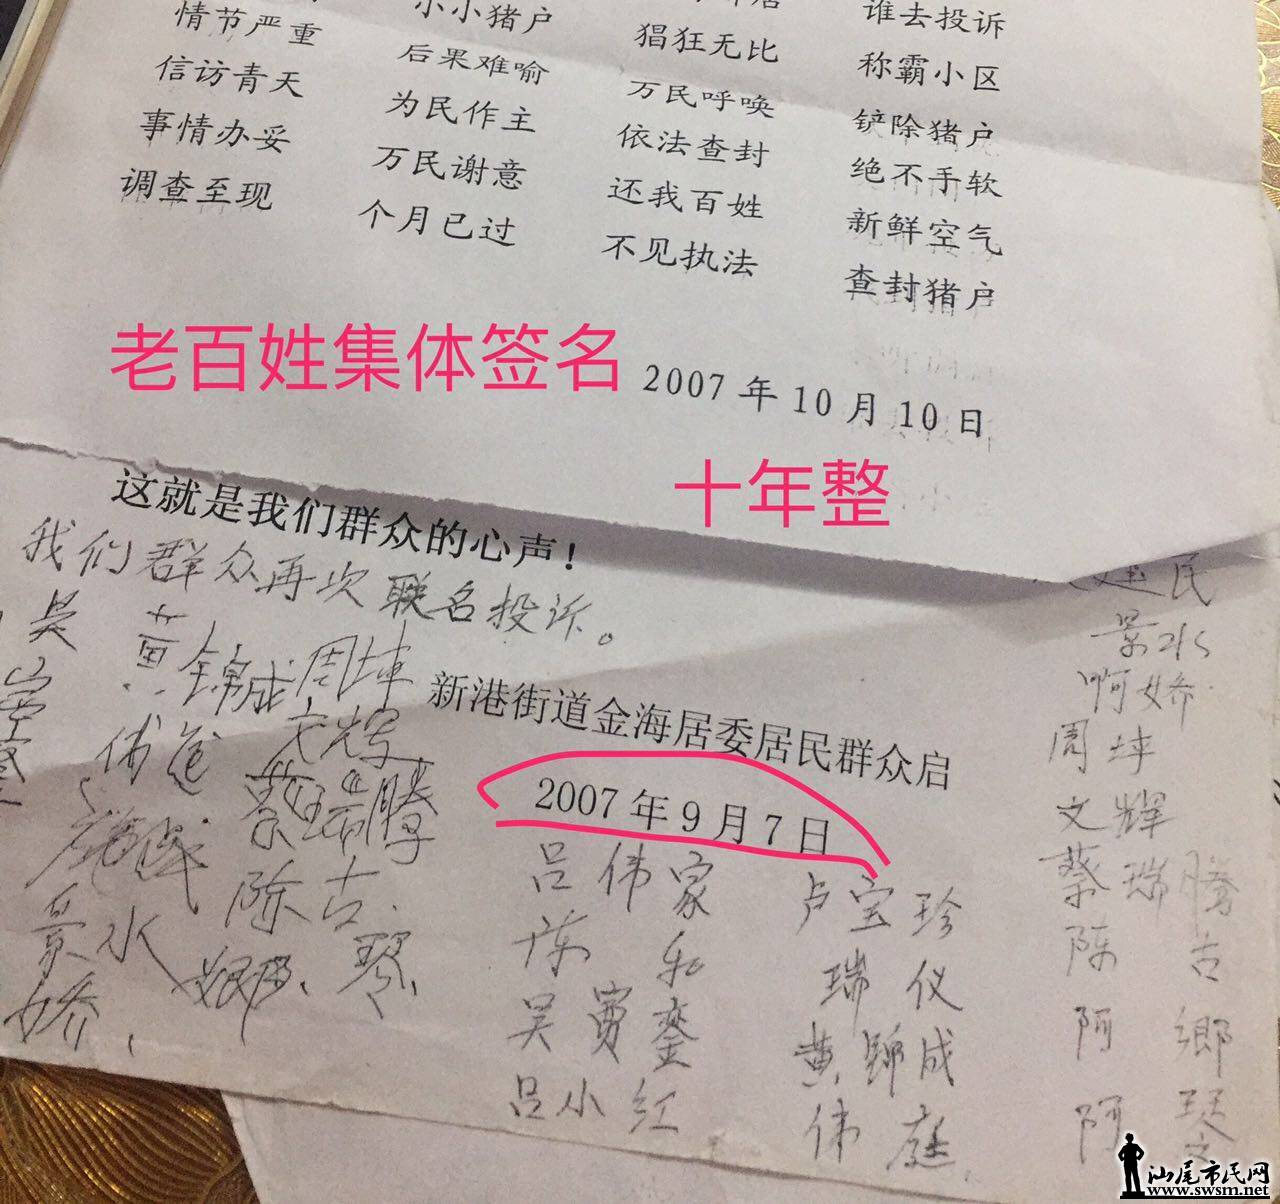 谁去投诉
情节严重 小小猪户 猖狂无比 称霸小区
信访青天 后果难喻 万民呼唤 铲除猪户
事情办妥 为民作主 依法查封 绝不手软
调查至现 万民谢意 还我百姓 新鲜空气
个月已过 不见执法 查封猪户
老百姓集体签名
2007年10月10日
十年整
这就是我们群众的心声！
我们群众再次联名投诉。
新港街道金海居委居民群众启
2007年9月7日
吴
黄锦成 周坤
文辉
蔡瑞腾
陈古
景水
娇
琴
吕伟家 卢宝珍
陈
瑞仪
吴
黄锦成
吕小红
伟庭
建民
景水
啊娇
周坤
文辉
蔡瑞腾
陈古
阿鄉
阿
汕尾市民网
www.swsm.net